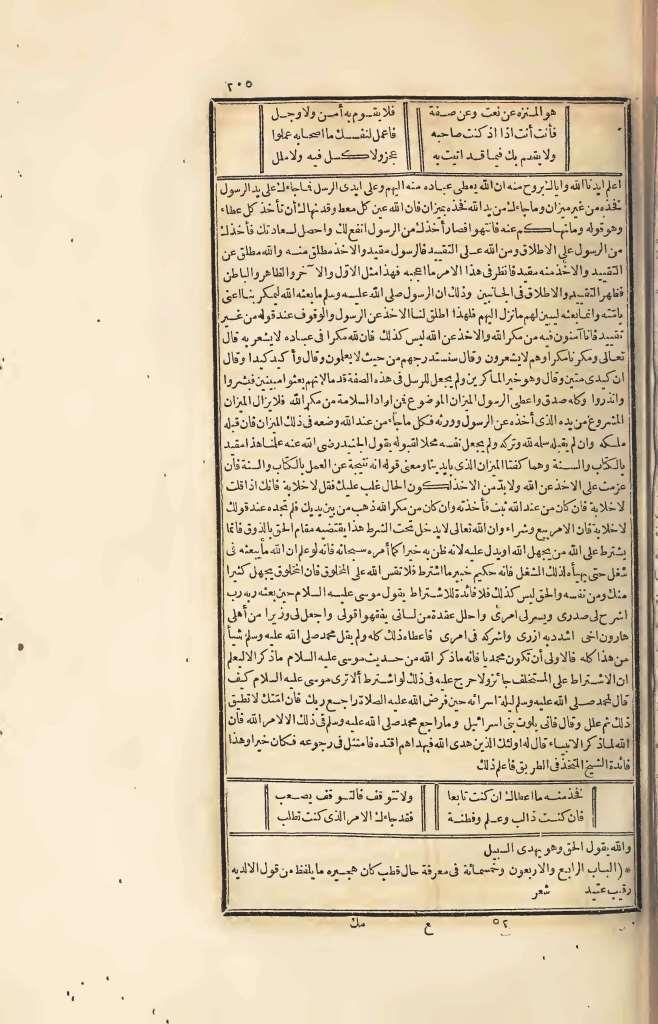 ٢٠٥
هو المنزه عن نعت وعن صفة فلا يقوم به أمن ولا وجل
فأنت أنت اذا اذ كنت صاحبه فاعمل لنفسك ما اصحابه عملوا
ولا يقدم بك فيما قد اتيت به عجز ولا كسل فيه ولا ملل
اعلم ايدنا الله واياك بروح منه ان الله يعطى عباده منه اليهم وعلى ايدى الرسل فما جاءك على يد الرسول
فخذه من غير ميزان وما جاءك من يد الله فخذه بميزان فان الله عين كل معط وقد نهاك أن تأخذ كل عطاء
وهو قوله وما نهاكم عنه فانتهوا فصار أخذك من الرسول انفع لك واحصل لسعادتك فأخذك
من الرسول على الاطلاق ومن الله على التقييد فالرسول مقيد والاخذ مطلق منه والله مطلق عن
التقييد والاخذ منه مقيد فانظر فى هذا الامر ما اعجبه فهذا مثل الاوّل والآخر والظاهر والباطن
فظهر التقييد والاطلاق فى الجانبين وذلك ان الرسول صلى الله عليه وسلم ما بعثه الله ليمكر بنا اعنى
بامّته وانما بعثه ليبين لهم ما نزل اليهم فلهذا اطلق لنا الاخذ عن الرسول والوقوف عند قوله من غير
تقييد فانا آمنون فيه من مكر الله والاخذ عن الله ليس كذلك فان لله مكرا فى عباده لا يشعر به قال
تعالى ومكرنا مكرا وهم لا يشعرون وقال سنستدرجهم من حيث لا يعلمون وقال وأكيد كيدا وقال
ان كيدى متين وقال وهو خير الماكرين ولم يجعل للرسل فى هذه الصفة قدما لانهم بعثوا مبينين فبشروا
وانذروا وكله صدق واعطى الرسول الميزان الموضوع فمن اراد السلامة من مكر الله فلا يزال الميزان
المشروع من يده الذى أخذه عن الرسول وورثه فكل ما جاءه من عند الله وضعه فى ذلك الميزان فان قبله
ملكه وان لم يقبله سلمه لله وتركه ولم يجعل نفسه محلا لقبوله يقول الجنيد رضى الله عنه علمنا هذا مقيد
بالكتاب والسنة وهما كفتا الميزان الذى بايدينا ومعنى قوله انه نتيجة عن العمل بالكتاب والسنة فان
عزمت على الاخذ عن الله ولا بدّ من الاخذ لكون الحال غلب عليك فقل لا خلابة فانك اذا قلت
لا خلابة فان كان من عند الله ثبت فأخذته وان كان من مكر الله ذهب من بين يديك فلم تجده عند قولك
لا خلابة فان الامر بيع وشراء وان الله تعالى لا يدخل تحت الشرط هذا يقتضيه مقام الحق بالذوق فانما
يشترط على الله من يجهل الله او يدل عليه لانه ظن به خيرا كما أمره سبحانه فانه لو علم ان الله ما يبعثه فى
شغل حتى يهيأه لذلك الشغل فانه حكيم خبير ما اشترط فلا تقس الله على المخلوق فان المخلوق يجهل كثيرا
منك ومن نفسه والحق ليس كذلك فلا فائدة للاشتراط يقول موسى عليه السلام حين بعثه ربه رب
اشرح لى صدرى ويسر لى امرى واحلل عقدة من لسانى يفقهوا قولى واجعل لى وزيرا من أهلى
هارون اخى اشدد به ازرى واشركه فى امرى فاعطاه ذلك كله ولم يقل محمد صلى الله عليه وسلم شيأ
من هذا كله فالاولى أن تكون محمديا فانه ما ذكر الله من حديث موسى عليه السلام ما ذكر الا ليعلم
ان الاشتراط على المستخلف جائز ولا حرج عليه فى ذلك لو اشترط ألا ترى موسى عليه السلام كيف
قال لمحمد صلى الله عليه وسلم ليلة اسرائه حين فرض الله عليه الصلاة راجع ربك فان امّتك لا تطيق
ذلك ثم علل وقال فانى بلوت بنى اسرائيل وما راجع محمد صلى الله عليه وسلم فى ذلك الا لامر الله فان
الله لما ذكر الانبياء قال له اولئك الذين هدى الله فبهداهم اقتده فامتثل فى رجوعه فكان خيرا وهذا
فائدة الشيخ المتخذ فى الطريق فاعلم ذلك
فخذ منه ما اعطاك ان كنت تابعا ولا تتوقف فالتوقف يصعب
فان كنت ذا لب وعلم وفطنة فقد جاءك الامر الذى كنت تطلب
والله يقول الحق وهو يهدى السبيل
*(الباب الرابع والاربعون وخمسمائة فى معرفة حال قطب كان هجيره ما يلفظ من قول الا لديه
رقيب عتيد شعر
٥٢ ع مك